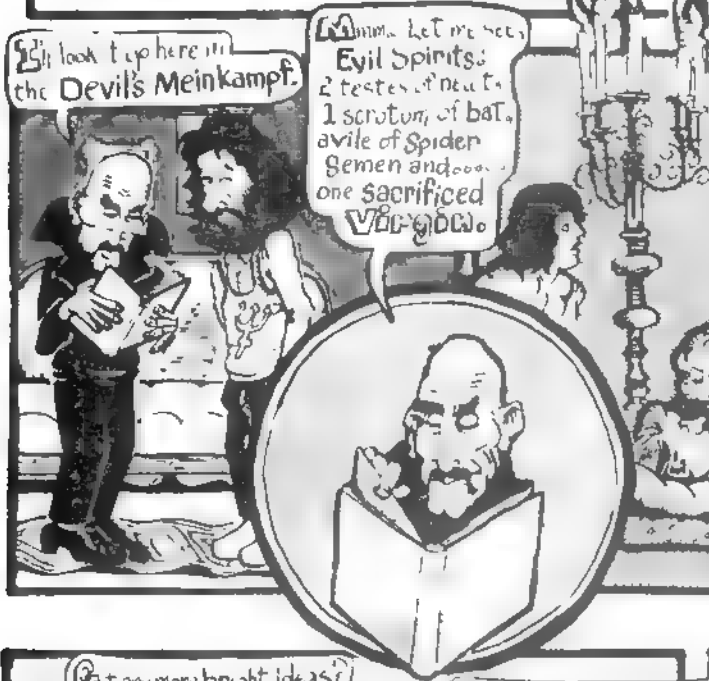 I'll look it up here in
the Devil's Meinkampf.
Mmmm. Let me see,
Evil Spirits:
2 testes of newts,
1 scrotum of bat,
a vile of Spider
Semen and.....
one sacrificed
Virgin.
Got any more bright ideas?